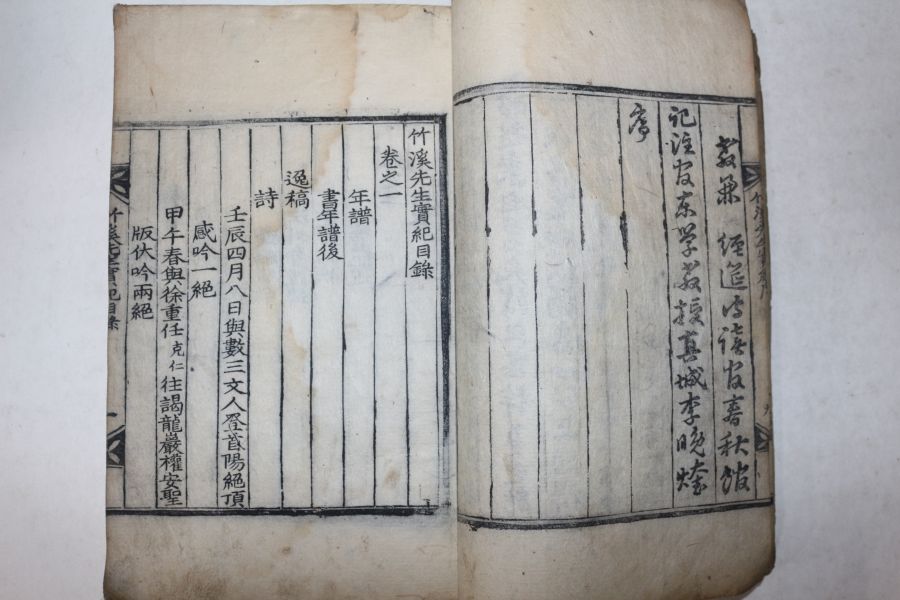 教兼 經筵侍讀官春秋館
記注官東學教授真城李晚煃
序
竹溪先生實紀目錄
卷之一
年譜
書年譜後
逸稿
詩
壬辰四月八日與數三文人登首陽絕頂
感吟一絕
甲午春與徐重任克仁往謁龍巖權安聖
版伏吟兩絕
竹溪先生實紀目錄 一